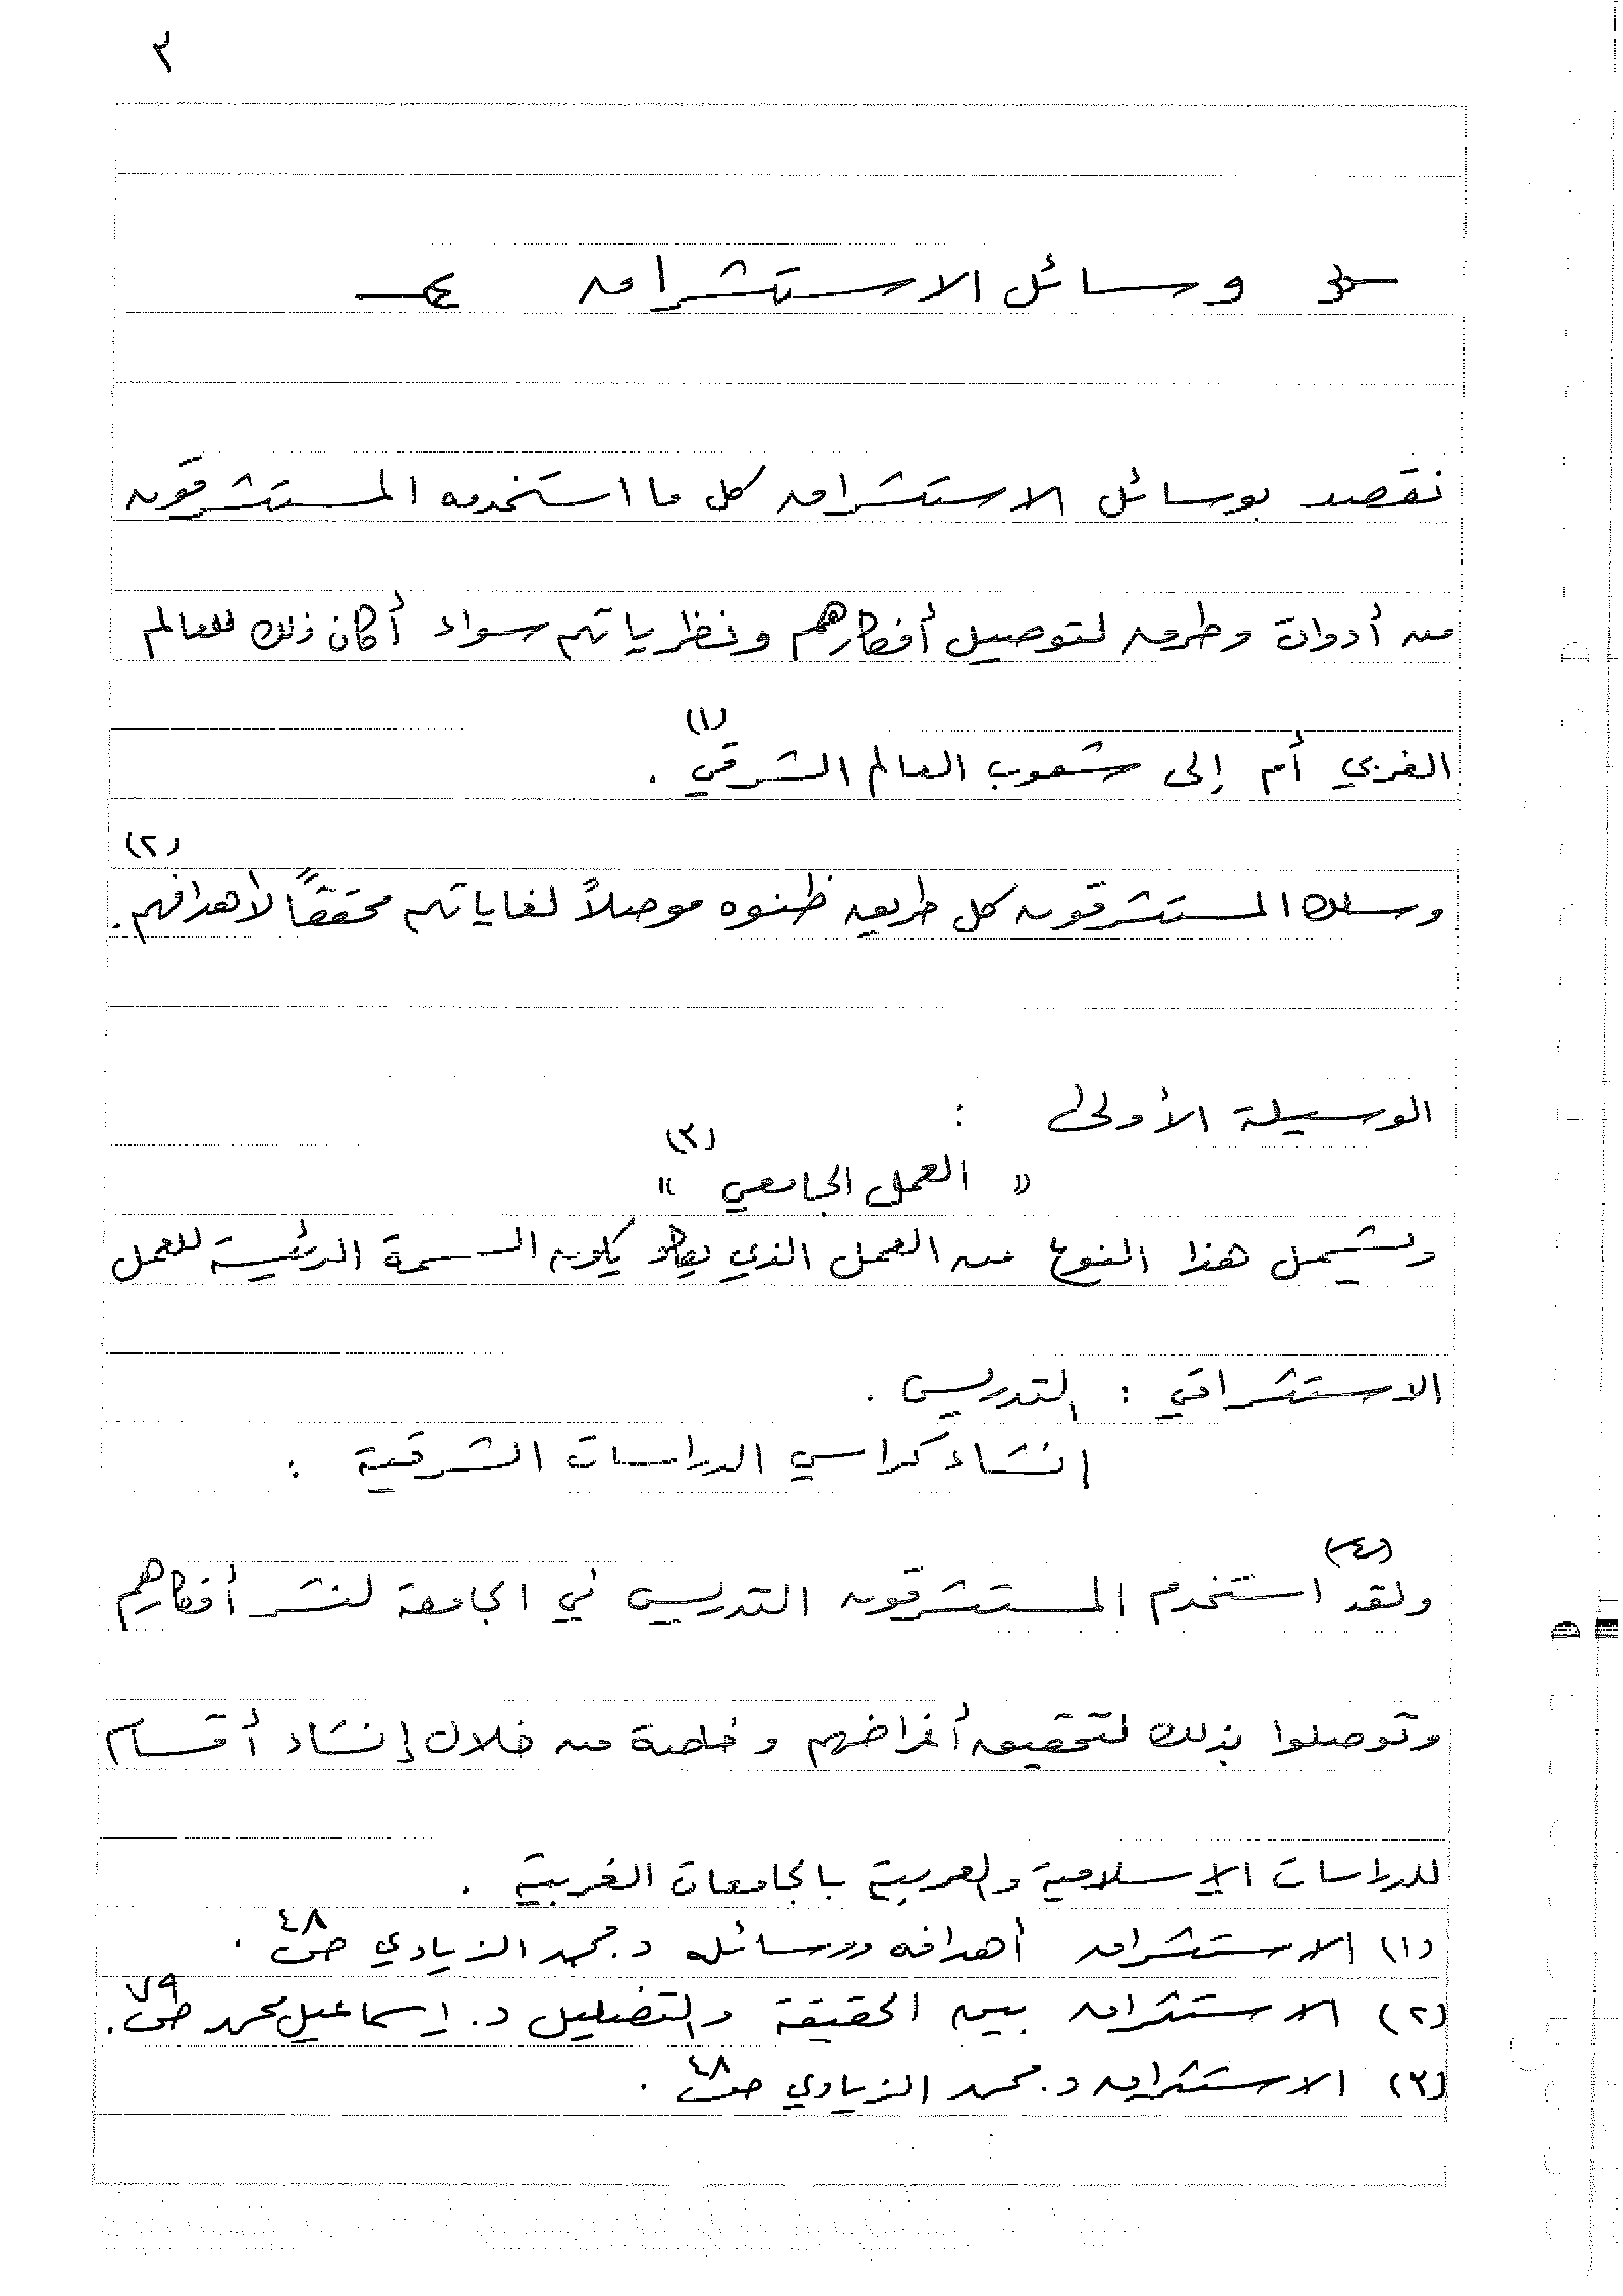 ٣
وسائل الاستشراق
نقصد بوسائل الاستشراق كل ما استخدمه المستشرقون
من أدوات وطرق لتوصيل أفكارهم ونظرياتهم سواء أكان ذلك للعالم
(١)
الغربي أم إلى شعوب العالم الشرقي .
(٢)
وسلك المستشرقون كل طريق ظنوه موصلاً لغاياتهم محققاً لأهدافهم .
الوسيلة الأولى :
(٣)
" العمل الجامعي "
ويشمل هذا النوع من العمل الذي يكاد يكون السمة الرئيسية للعمل
الاستشراقي : التدريس .
إنشاء كراسي الدراسات الشرقية :
(٤)
ولقد استخدم المستشرقون التدريس في الجامعة لنشر أفكارهم
وتوصلوا بذلك لتحقيق أغراضهم وخاصة من خلال إنشاء أقسام
للدراسات الإسلامية والعربية بالجامعات الغربية .
(١) الاستشراق أهدافه ووسائله د. محمد الزيادي ص ٤٨ .
(٢) الاستشراق بين الحقيقة والتضليل د. إسماعيل محمد ص ٧٩ .
(٣) الاستشراق د. محمد الزيادي ص ٤٨ .